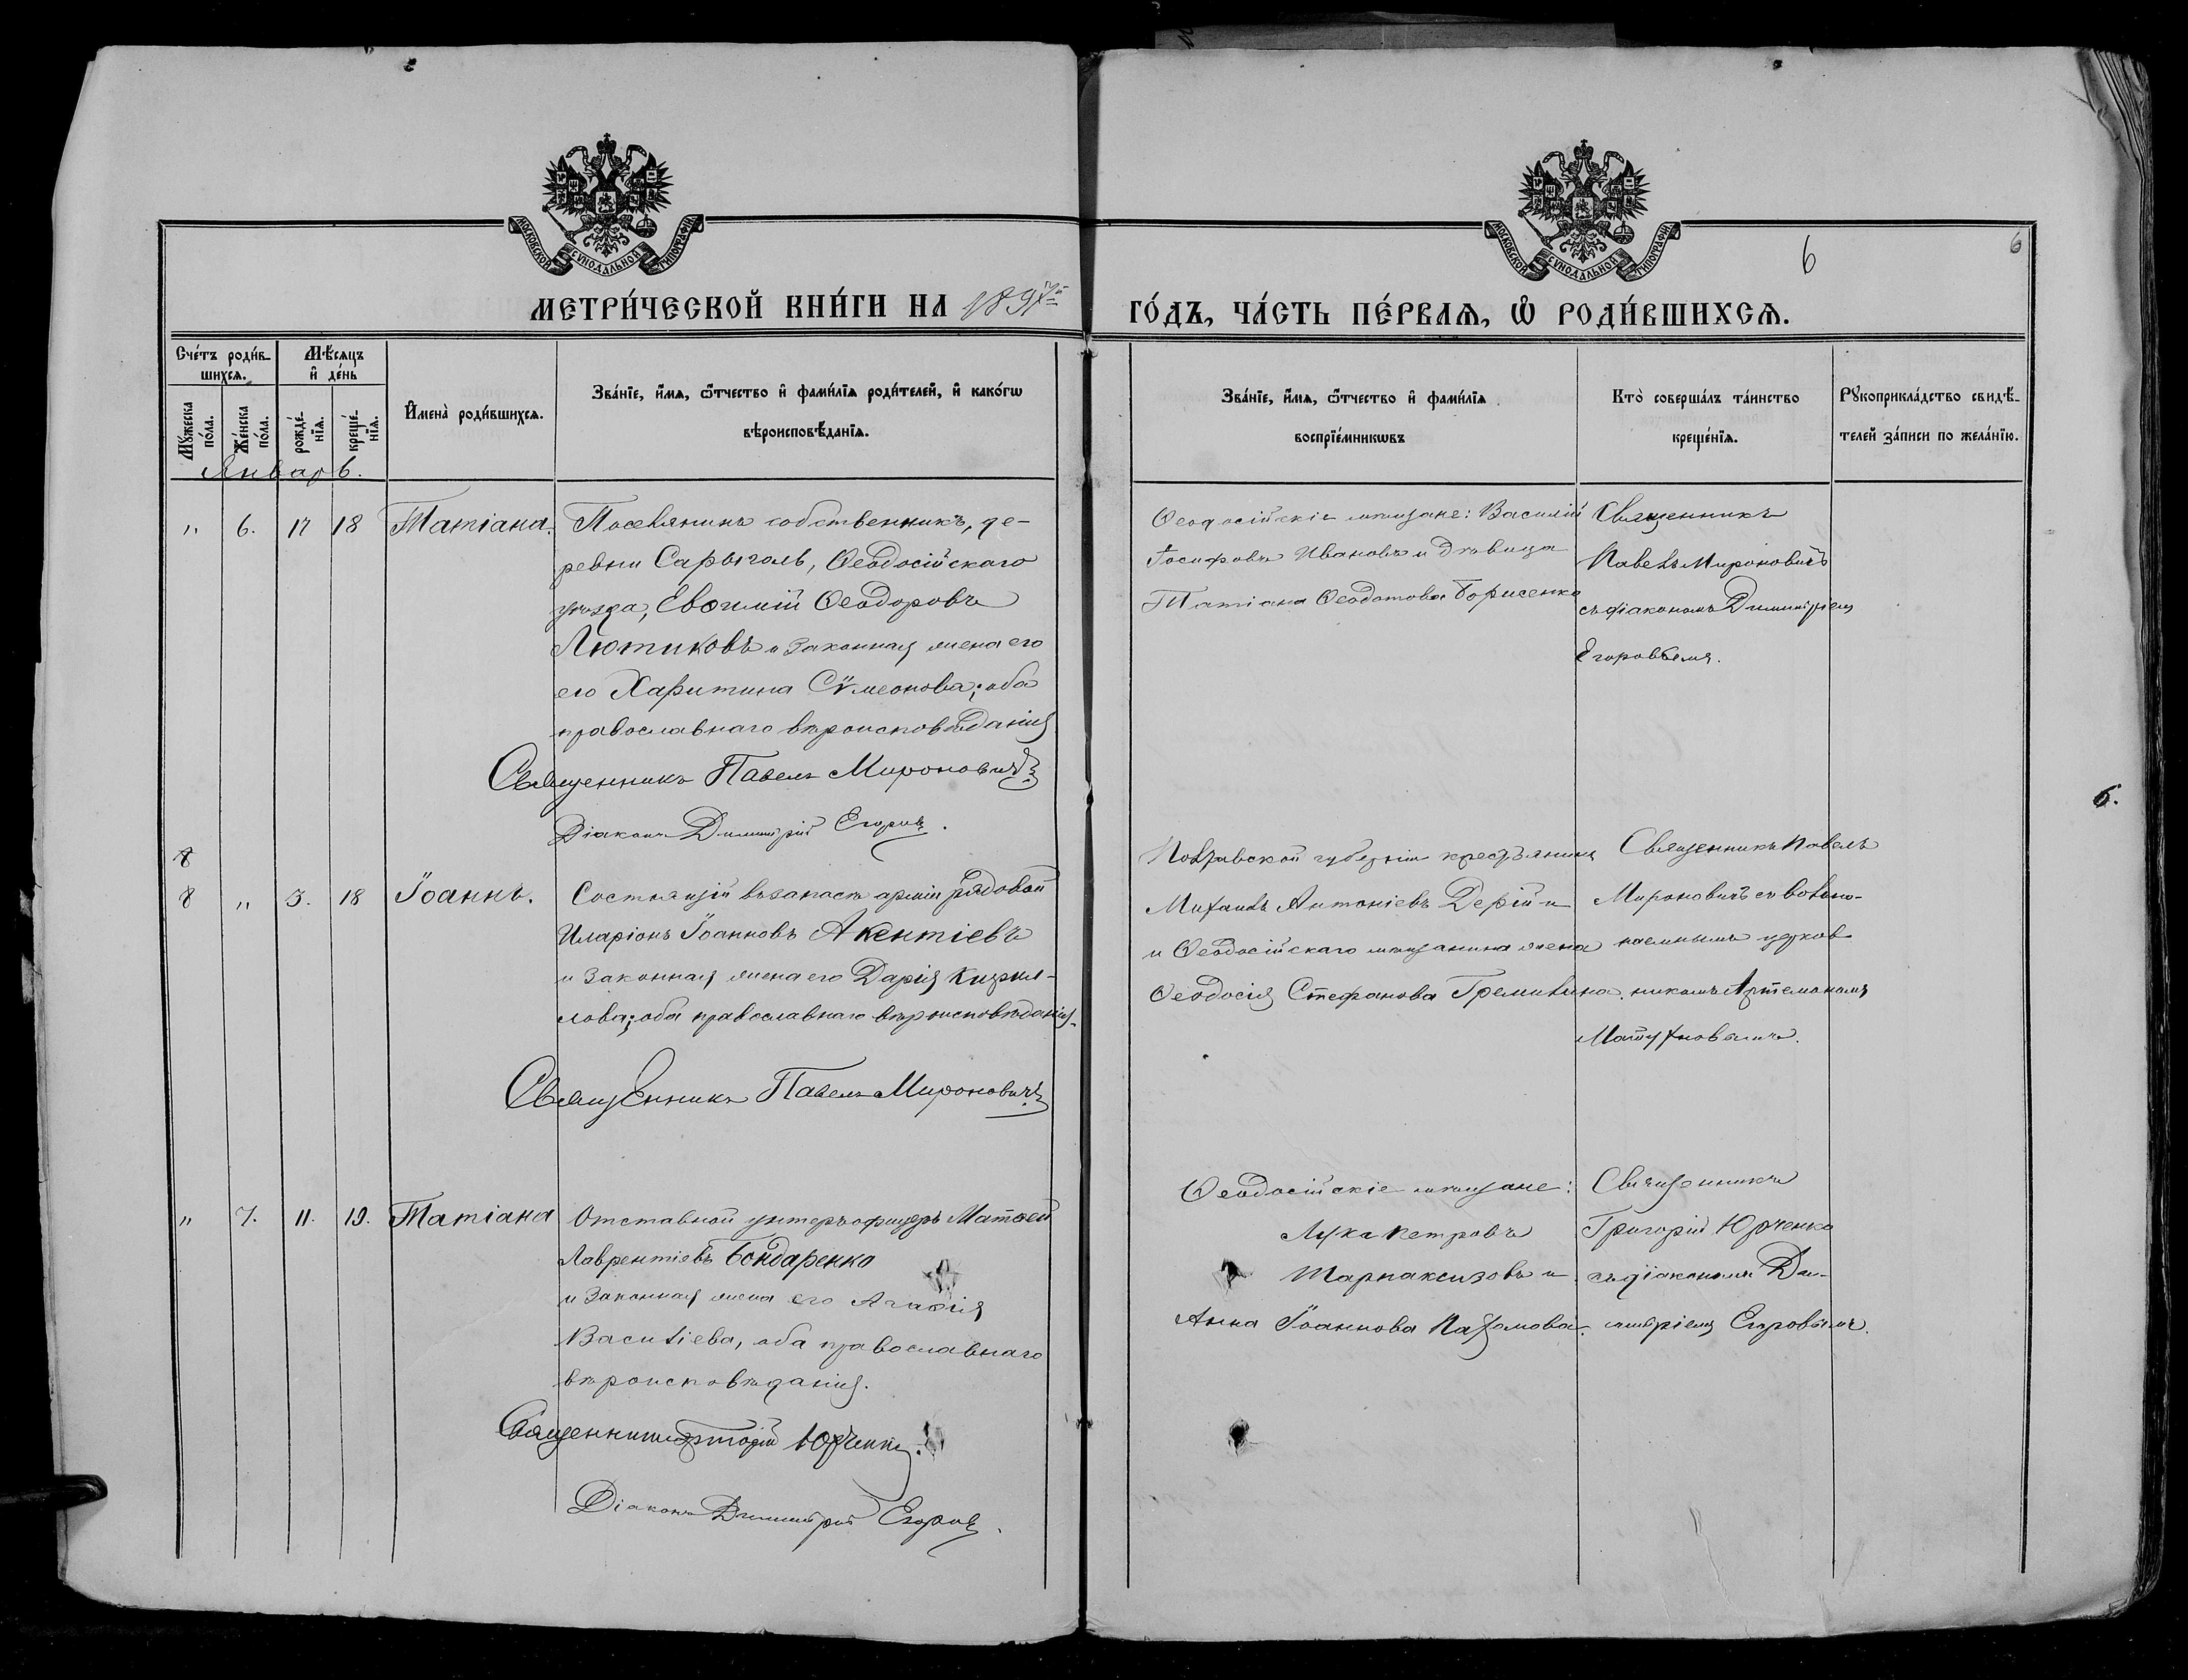 МОСКОВСКОЙ СѴНОДАЛЬНОЙ ТИПОГРАФІИ
МОСКОВСКОЙ СѴНОДАЛЬНОЙ ТИПОГРАФІИ
6
6
МЕТРИ́ЧЕСКОЙ КНИ́ГИ НА 1897й
ГО́ДЪ, ЧА́СТЬ ПЕ́РВАѦ, Ѡ РОДИ́ВШИХСѦ.
Сче́тъ роди́в-
шихсѧ.
Мѣ́сѧцъ
и҆ де́нь
Мꙋжеска
по́ла.
Же́нска
по́ла.
рожде́-
нїѧ.
креще́-
нїѧ.
И҆мена̀ роди́вшихсѧ.
Зва́нїе, и҆́мѧ, ѻ҆́тчество и҆ фами́лїѧ роди́телей, и҆ како́гѡ
вѣроисповѣ́данїѧ.
Зва́нїе, и҆́мѧ, ѻ҆́тчество и҆ фами́лїѧ
воспрїе́мникѡвъ
Кто̀ соверша́лъ та́инство
креще́нїѧ.
Рꙋкоприкла́дство свидѣ́-
телей за́писи по жела́нїю.
Январь.
" 6. 17 18 Татіана.
Поселянинъ собственникъ, де-
ревни Сарыголь, Ѳеодосійскаго
уѣзда, Евѳимій Ѳеодоровъ
Лютиковъ и законная жена его
его Харитина Сѵмеонова; оба
православнаго вѣроисповѣданія
Священникъ Павелъ Мироновичъ
Діаконъ Димитрій Егоровъ.
Ѳеодосійскіе мѣщане: Василій
Іосифовъ Ивановъ и дѣвица
Татіана Ѳеодотова Борисенко
Священникъ
Павелъ Мироновичъ
съ діакономъ Димитріемъ
Егоровымъ.
6.
8
8 " 3. 18 Іоаннъ.
Состоящій въ запасѣ арміи рядовой
Иларіонъ Іоанновъ Акентіевъ
и законная жена его Дарія Кирил-
лова; оба православнаго вѣроисповѣданія.
Священникъ Павелъ Мироновичъ
Полтавской губерніи крестьянинъ
Михаилъ Антоніевъ Дерій и
и Ѳеодосійскаго мѣщанина жена
Ѳеодосія Стефанова Гремилина.
Священникъ Павелъ
Мироновичъ съ вольно-
наемнымъ церков-
никомъ Артемономъ
" 7. 11. 19. Татіана
Отставной унтеръ-офицеръ Матѳей
Лаврентіевъ Бондаренко
и законная жена его Агафія
Василіева, оба православнаго
вѣроисповѣданія.
Священникъ Григорій Юрченко.
Діаконъ Димитрій Егоровъ.
Ѳеодосійскіе мѣщане:
Лука Петровъ
Шарпаксизовъ и
Анна Іоаннова Пахомова.
Священникъ
Григорій Юрченко
съ діакономъ Ди-
митріемъ Егоровымъ.